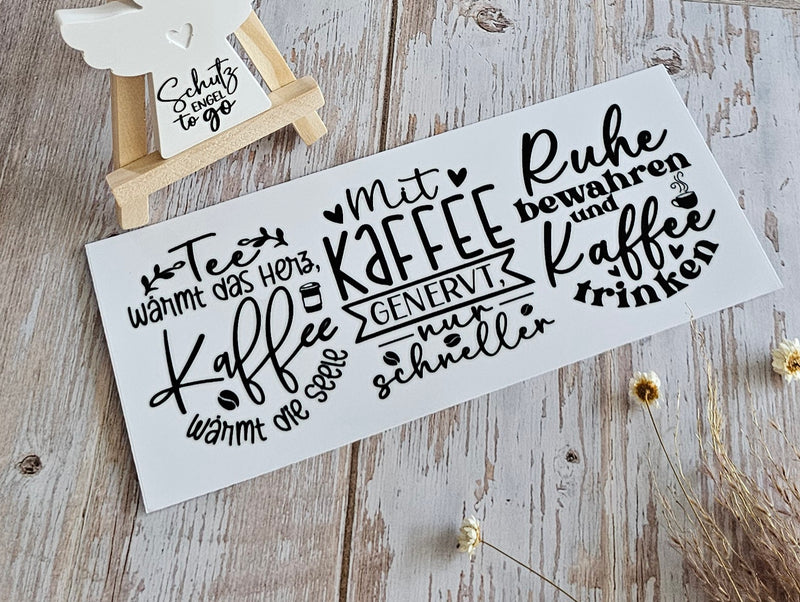 Schutz
ENGEL
to go
Tee
wärmt das Herz,
Kaffee
wärmt die Seele
Mit
KAFFEE
GENERVT,
nur
schneller
Ruhe
bewahren
und
Kaffee
trinken